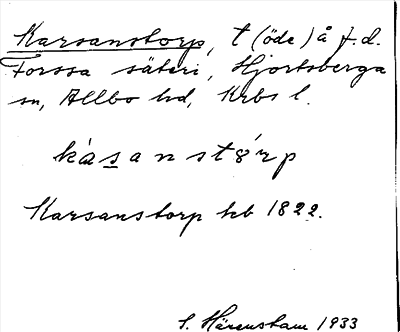 Karsanstorp, t (öde) å f.d.
Forssa säteri, Hjortsberga
sn, Allbo hd, Krbs l.
kàsanstǿrp
Karsanstorp hb 1822.
S. Härenstam 1933